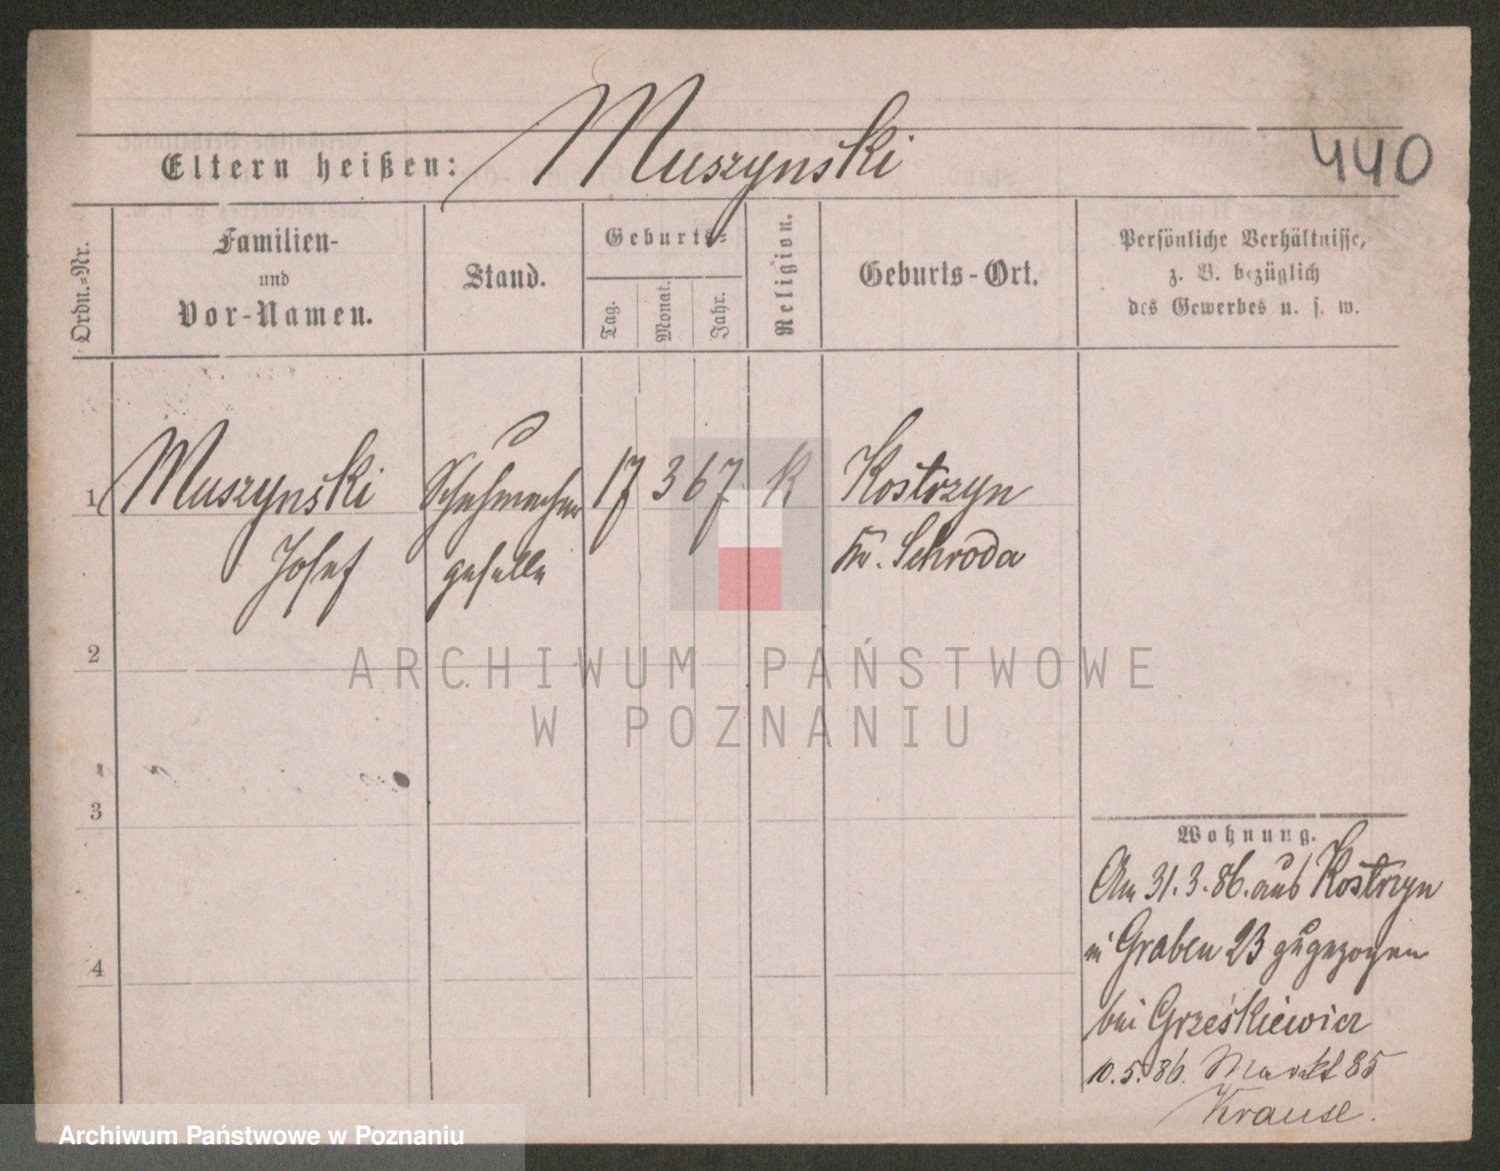 Muszynski
440
Eltern heißen:
Ordn.-Nr.
Familien-
und
Vor-Namen.
Stand.
Geburts-
Tag.
Monat.
Jahr.
Religion.
Geburts-Ort.
Persönliche Verhältnisse,
z. B. bezüglich
des Gewerbes u. s. w.
1 Muszynski Schuhmacher 17 3 67 k Kostrzyn
Josef geselle Kr. Schroda
2
3
4
Wohnung.
Am 31.3.86. aus Kostrzyn
in Graben 23 zugezogen
bei Grześkiewicz
10.5.86. Markt 85
Krause.
ARCHIWUM PAŃSTWOWE
W POZNANIU
Archiwum Państwowe w Poznaniu